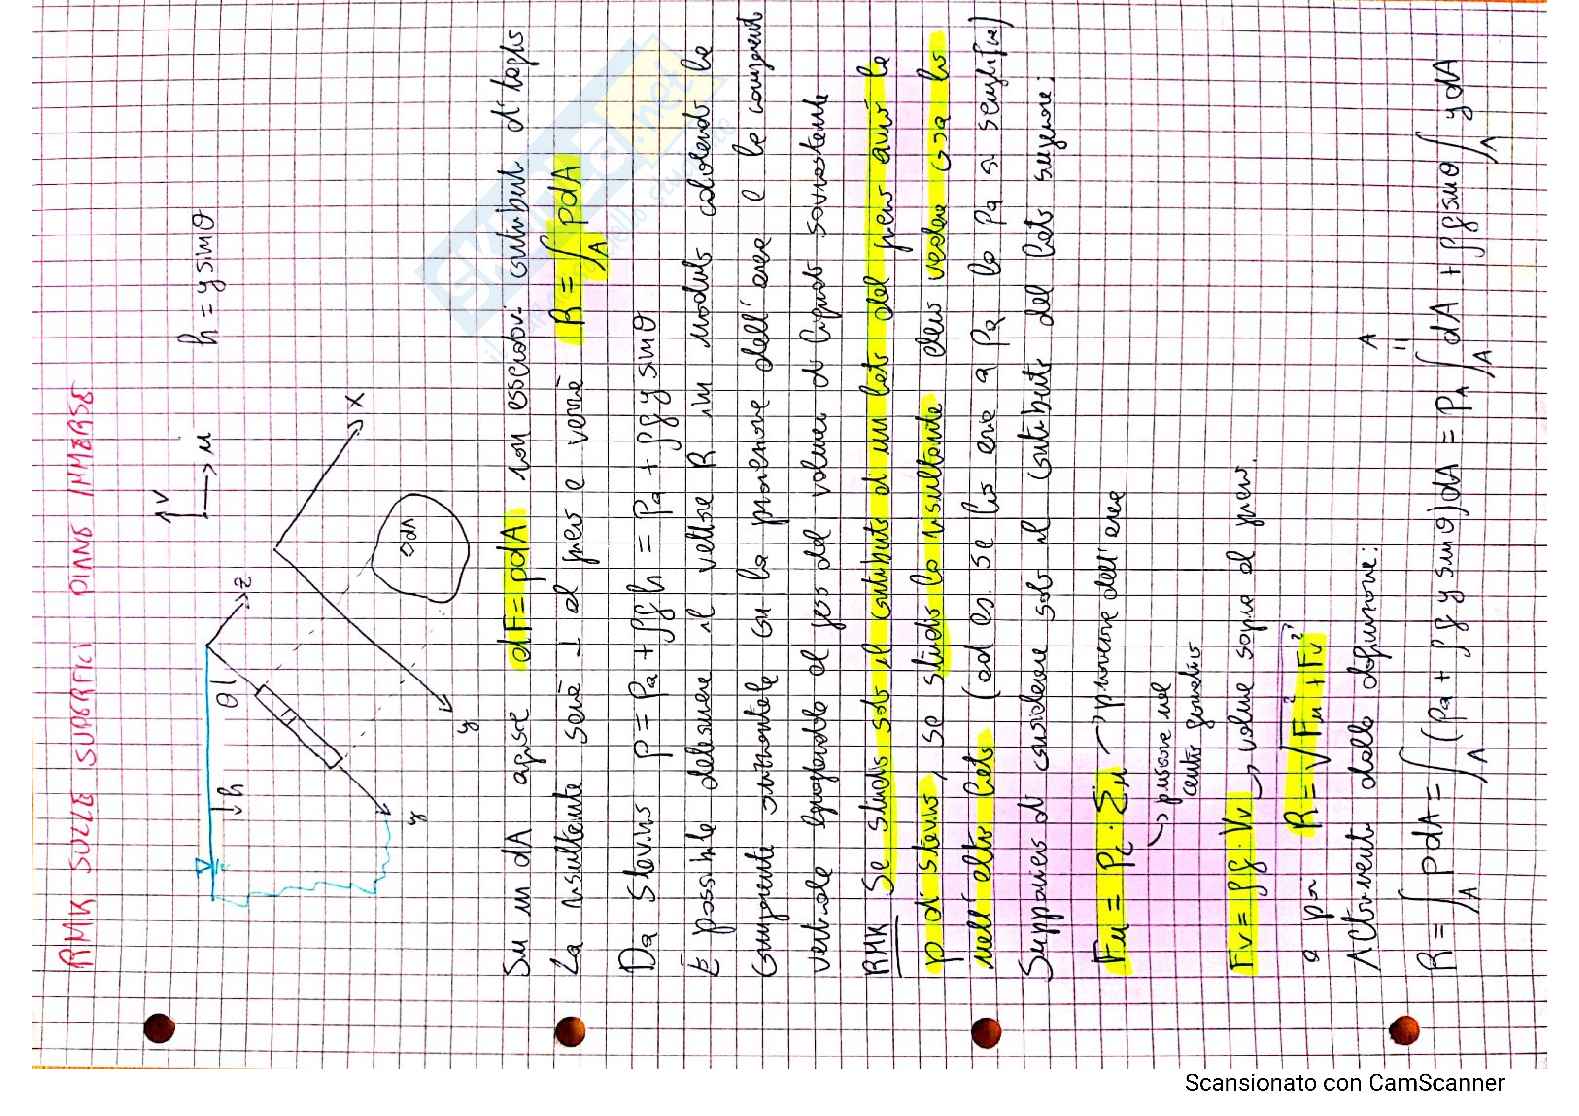 RMK SULLE SUPERFICI PIANE IMMERSE
h = y sinθ
v
u
θ
h
z
x
y
y
dA
Su un dA agisce dF = pdA non essendovi contributi di taglio
La risultante sarà ⊥ al piano e verrà R = ∫_A pdA
Da Stevino p = Pa + ρgh = Pa + ρgy sinθ
È possibile determinare il vettore R in modulo calcolando la
componente orizzontale con la proiezione dell'area e la componente
verticale eguagliandola al peso del volume di liquido sovrastante
RMK Se studio solo il contributo di un lato del piano avrò la
p di stevino, se studio la risultante devo vedere cosa ho
nell'altro lato (ad es. se ho aria a Pa la Pa si semplifica)
Supponiamo di considerare solo il contributo del lato superiore:
Fu = Pc · Σu → proiezione dell'area
→ pressione nel
centro geometrico
Fv = ρg · Vv → volume sopra al piano.
e poi R = √(Fu² + Fv²)
Altrimenti dalla definizione:
A
=
R = ∫_A pdA = ∫_A (Pa + ρgy sinθ)dA = PA ∫_A dA + ρg sinθ ∫_A ydA
SKUOLA.net
Scansionato con CamScanner